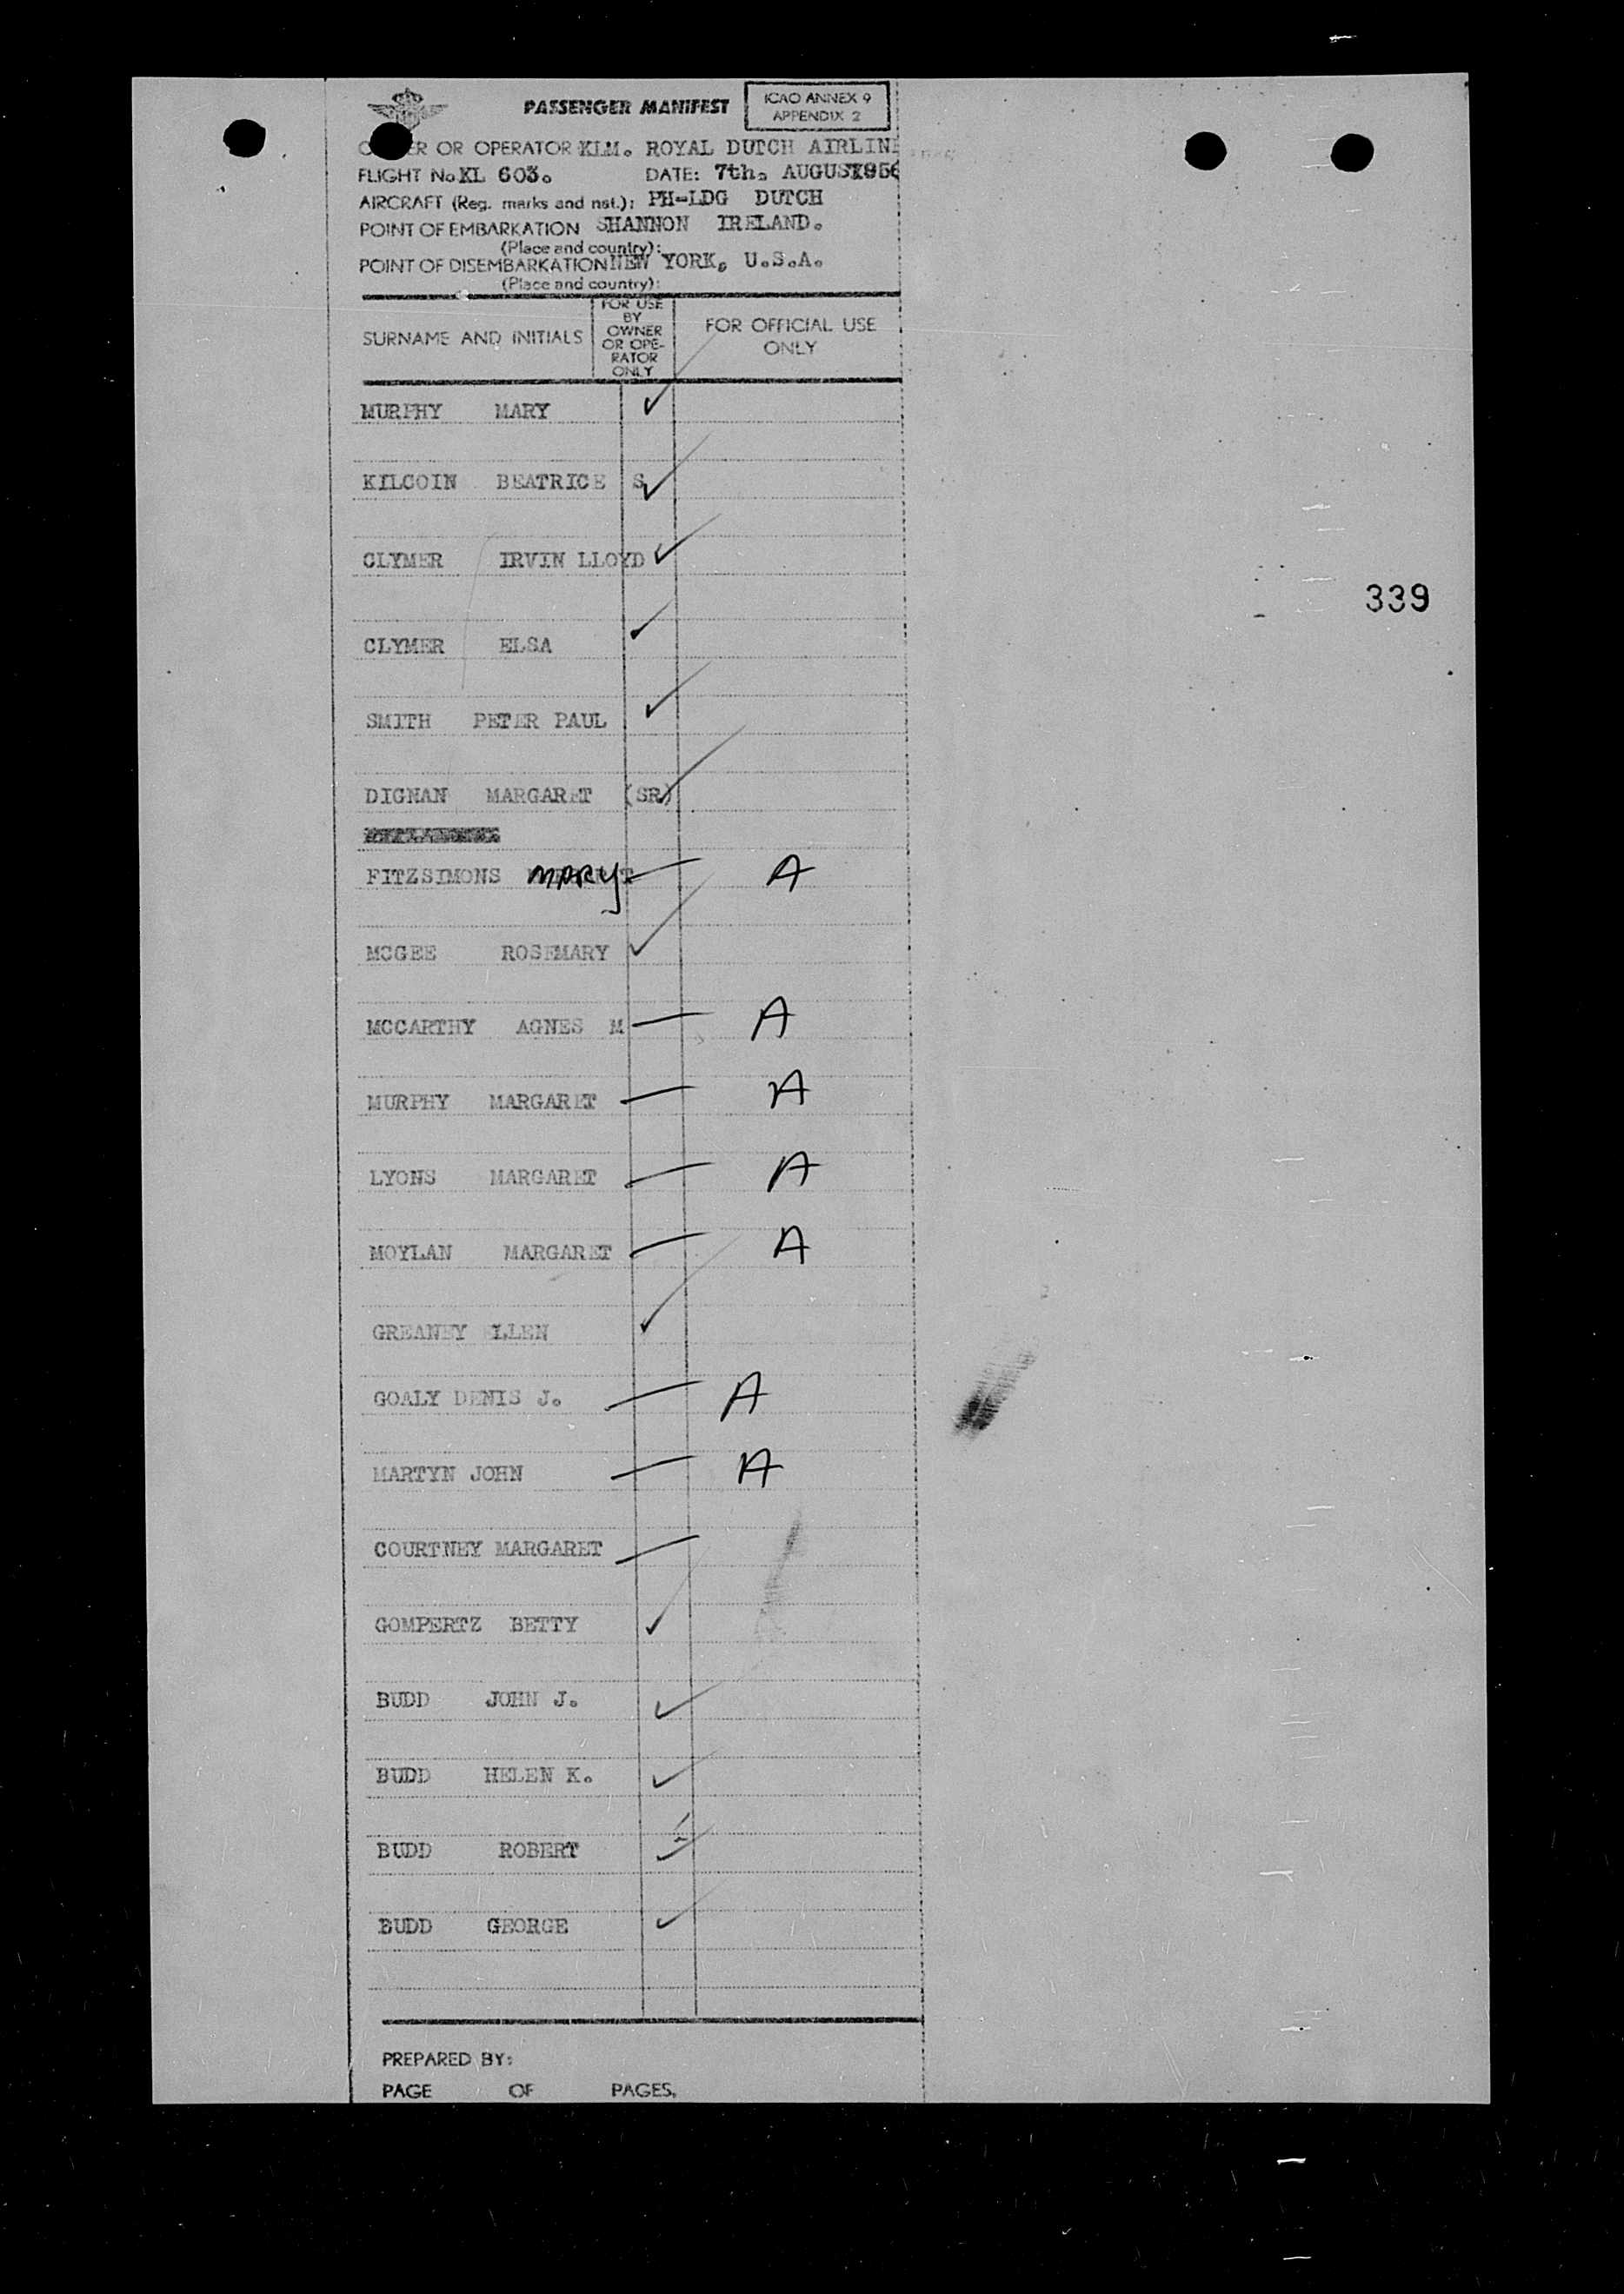 PASSENGER MANIFEST
ICAO ANNEX 9
APPENDIX 2
OR OPERATOR KLM. ROYAL DUTCH AIRLINE
FLIGHT No. KL 603. DATE: 7th. AUGUST 1956
AIRCRAFT (Reg. marks and nat.): PH-LDG DUTCH
POINT OF EMBARKATION SHANNON IRELAND.
(Place and country):
POINT OF DISEMBARKATION NEW YORK, U.S.A.
(Place and country):
SURNAME AND INITIALS
FOR USE
BY
OWNER
OR OPE-
RATOR
ONLY
FOR OFFICIAL USE
ONLY
MURPHY MARY
KILCOIN BEATRICE S
CLYMER IRVIN LLOYD
339
CLYMER ELSA
SMITH PETER PAUL
DIGNAN MARGARET (SR)
FITZSIMONS MARY A
MCGEE ROSEMARY
MCCARTHY AGNES M A
MURPHY MARGARET A
LYONS MARGARET A
MOYLAN MARGARET A
GREANEY ELLEN
GOALY DENIS J. A
MARTYN JOHN A
COURTNEY MARGARET
GOMPERTZ BETTY
BUDD JOHN J.
BUDD HELEN K.
BUDD ROBERT
BUDD GEORGE
PREPARED BY:
PAGE OF PAGES.